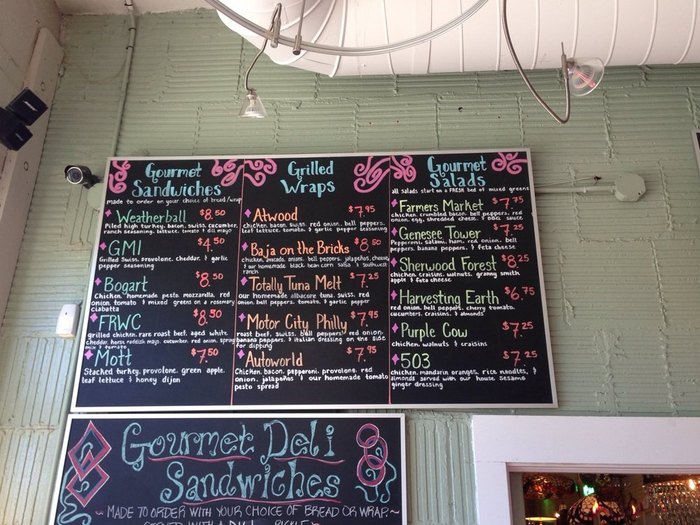 Gourmet
Sandwiches
made to order on your choice of bread/wrap
Weatherball $8.50
Piled high turkey, bacon, swiss, cucumber,
ranch seasoning, lettuce, tomato & dill mayo
GMI $4.50
Grilled Swiss, provolone, cheddar, & garlic
pepper seasoning
Bogart $8.50
Chicken, homemade pesto, mozzarella, red
onion, tomato & mixed greens on a rosemary
ciabatta
FRWC $8.50
grilled chicken, rare roast beef, aged white
cheddar, horse radish mayo, cucumber, red onion, spring
mix & tomato
Mott $7.50
Stacked turkey, provolone, green apple,
leaf lettuce & honey dijon
Grilled
Wraps
Atwood $7.95
chicken, bacon, swiss, red onion, bell peppers,
leaf lettuce, tomato, & garlic pepper seasoning
Baja on the Bricks $8.50
chicken, avocado, onions, bell peppers, jalapeños, cheese
& our homemade black bean corn salsa & southwest
ranch
Totally Tuna Melt $7.25
our homemade albacore tuna, swiss, red
onion, bell peppers, tomato, & garlic pepper
Motor City Philly $7.95
roast beef, swiss, bell peppers, red onion,
banana peppers & italian dressing on the side
for dipping
Autoworld $7.95
Chicken, bacon, pepperoni, provolone, red
onion, jalapeños & our homemade tomato
pesto spread
Gourmet
Salads
all salads start on a FRESH bed of mixed greens
Farmers Market $7.75
chicken, crumbled bacon, bell peppers, red
onion, egg, shredded cheese, & bbq sauce
Genesee Tower $7.25
Pepperoni, salami, ham, red onion, bell
peppers, banana peppers, & feta cheese
Sherwood Forest $8.25
chicken, craisins, walnuts, granny smith
apple & feta cheese
Harvesting Earth $6.75
red onion, bell peppers, cherry tomatoes,
cucumbers, craisins, & almonds
Purple Cow $7.25
chicken, walnuts & craisins
503 $7.25
chicken, mandarin oranges, rice noodles, &
almonds served with our house sesame
ginger dressing
Gourmet Deli
Sandwiches
~ MADE TO ORDER WITH YOUR CHOICE OF BREAD OR WRAP. ~
SERVED WITH A